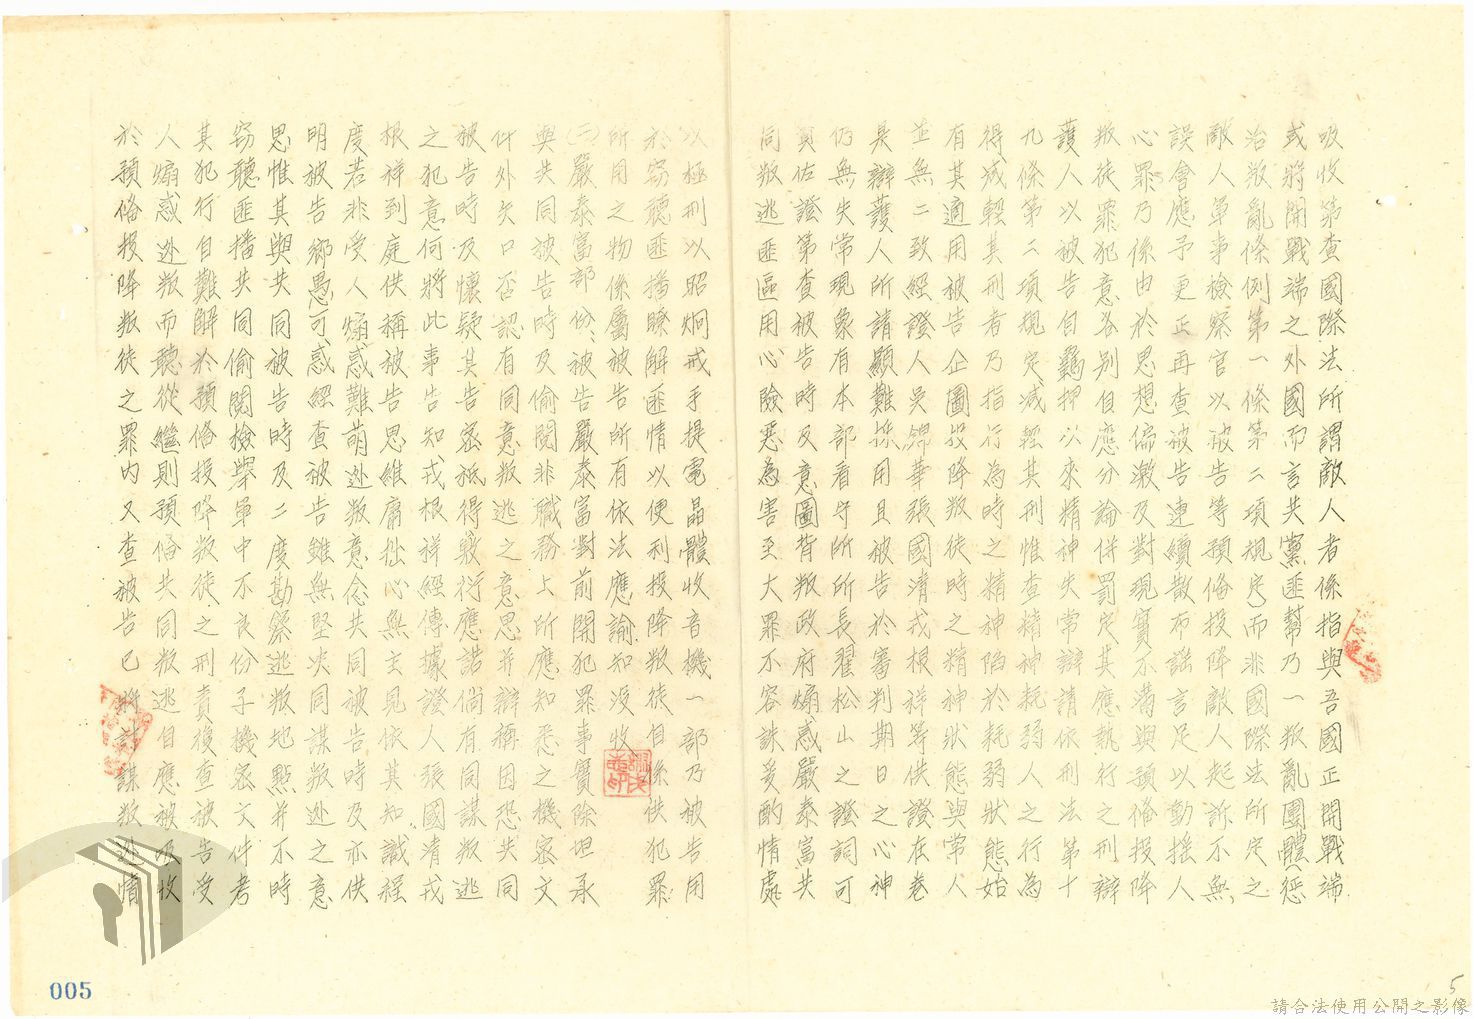 吸收第查國際法所謂敵人者係指與吾國正開戰端
或將開戰端之外國而言共黨匪幫乃一叛亂團體懲
治叛亂條例第一條第二項規定而非國際法所定之
敵人軍事檢察官以被告等預備投降敵人起訴不無
誤會應予更正再查被告連續散布謠言足以動搖人
心罪乃係由於思想偏激及對現實不滿與預備投降
叛徒罪犯意各別自應分論併罰定其應執行之刑辯
護人以被告自羈押以來精神失常辯請依刑法第十
九條第二項規定減輕其刑惟查精神耗弱人之行為
得減輕其刑者乃指行為時之精神陷於耗弱狀態始
有其適用被告企圖投降叛徒時之精神狀態與常人
並無二致經證人吳錦華張國清戎根祥等供證在卷
是辯護人所請顯難採用且被告於審判期日之心神
仍無失常現象有本部看守所所長翟松山之證詞可
資佐證第查被告時及意圖背叛政府煽惑嚴泰富共
同叛逃匪區用心險惡為害至大罪不容誅爰酌情處
以極刑以昭炯戒手提電晶體收音機一部乃被告用
於竊聽匪播瞭解匪情以便利投降叛徒自係供犯罪
所用之物係屬被告所有依法應諭知沒收
㈡嚴泰富部份、被告嚴泰富對前開犯罪事實除坦承
與共同被告時及偷閱非職務上所應知悉之機密文
件外矢口否認有同意叛逃之意思并辯稱因恐共同
被告時及懷疑其告密祇得敷衍應諾倘有同謀叛逃
之犯意何將此事告知戎根祥經傳據證人張國清戎
根祥到庭供稱被告思維庸拙心無主見依其知識程
度若非受人煽惑難萌逃叛意念共同被告時及亦供
明被告鄉愚可惑經查被告雖無堅決同謀叛逃之意
思惟其與共同被告時及二度勘察逃叛地點并不時
竊聽匪播共同偷閱檢舉軍中不良份子機密文件考
其犯行自難解於預備投降叛徒之刑責復查被告受
人煽惑逃叛而聽從繼則預備共同叛逃自應被吸收
於預備投降叛徒之罪內又查被告已將計謀叛逃情
005
5
請合法使用公開之影像